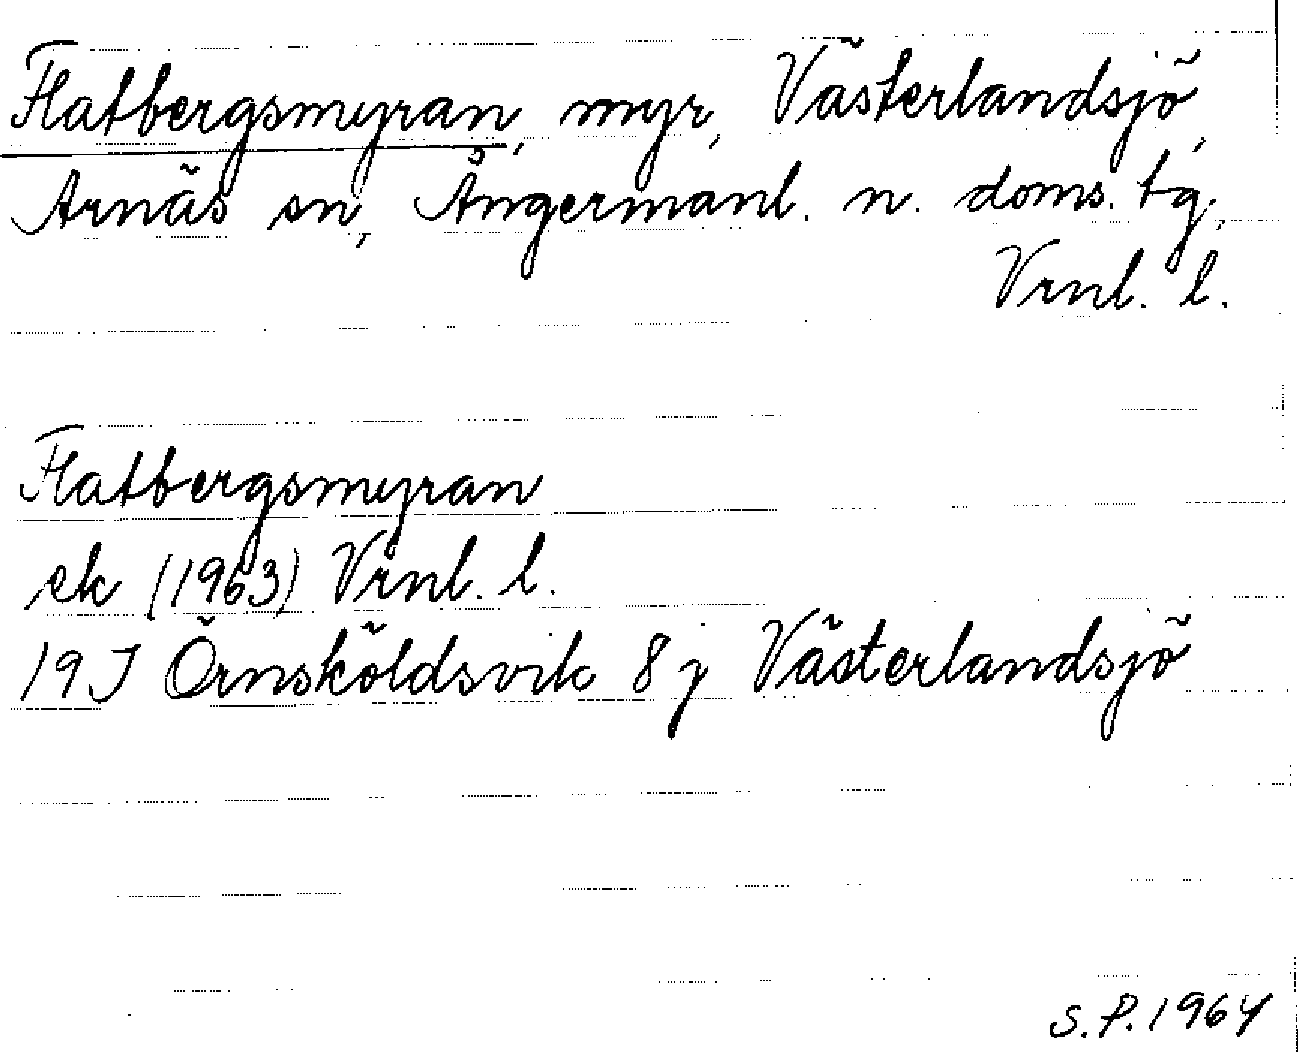 Flatbergsmyran, myr, Västerlandsjö,
Arnäs sn, Ångermanl. n. doms. tg.,
Vrnl. l.
Flatbergsmyran
ek (1963) Vrnl. l.
19J Örnsköldsvik 8j Västerlandsjö
S.P. 1964